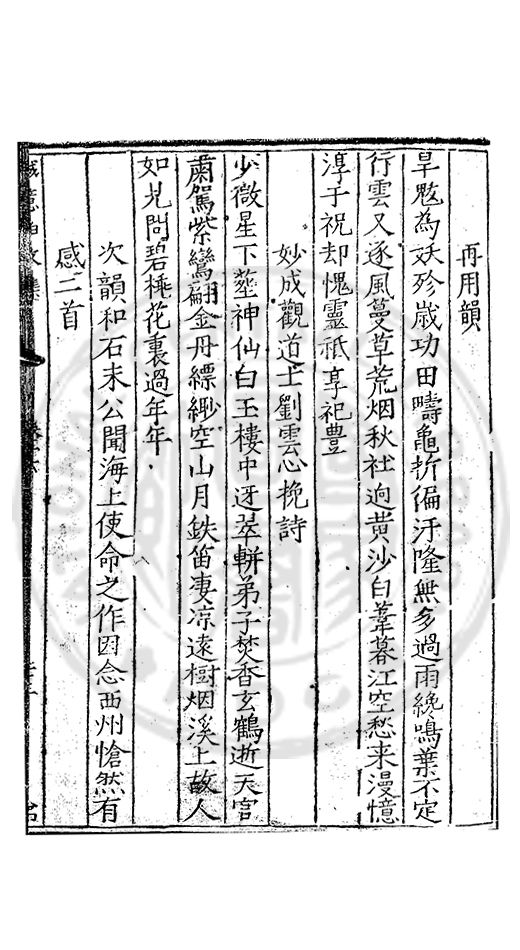 再用韻
旱魃為妖殄歲功田疇龜折偏汙隆無多過雨纔鳴葉不定
行雲又逐風蔓草荒烟秋社逈黄沙白葦暮江空愁来漫憶
淳于祝却愧靈祗享祀豊
妙成觀道士劉雲心挽詩
少微星下塟神仙白玉樓中迓翠軿弟子焚香玄鶴逝天官
肅駕紫鸞翩金丹縹緲空山月鉄笛凄凉遠樹烟溪上故人
如見問碧桃花裏過年年
次韻和石末公聞海上使命之作因念西州愴然有
感二首